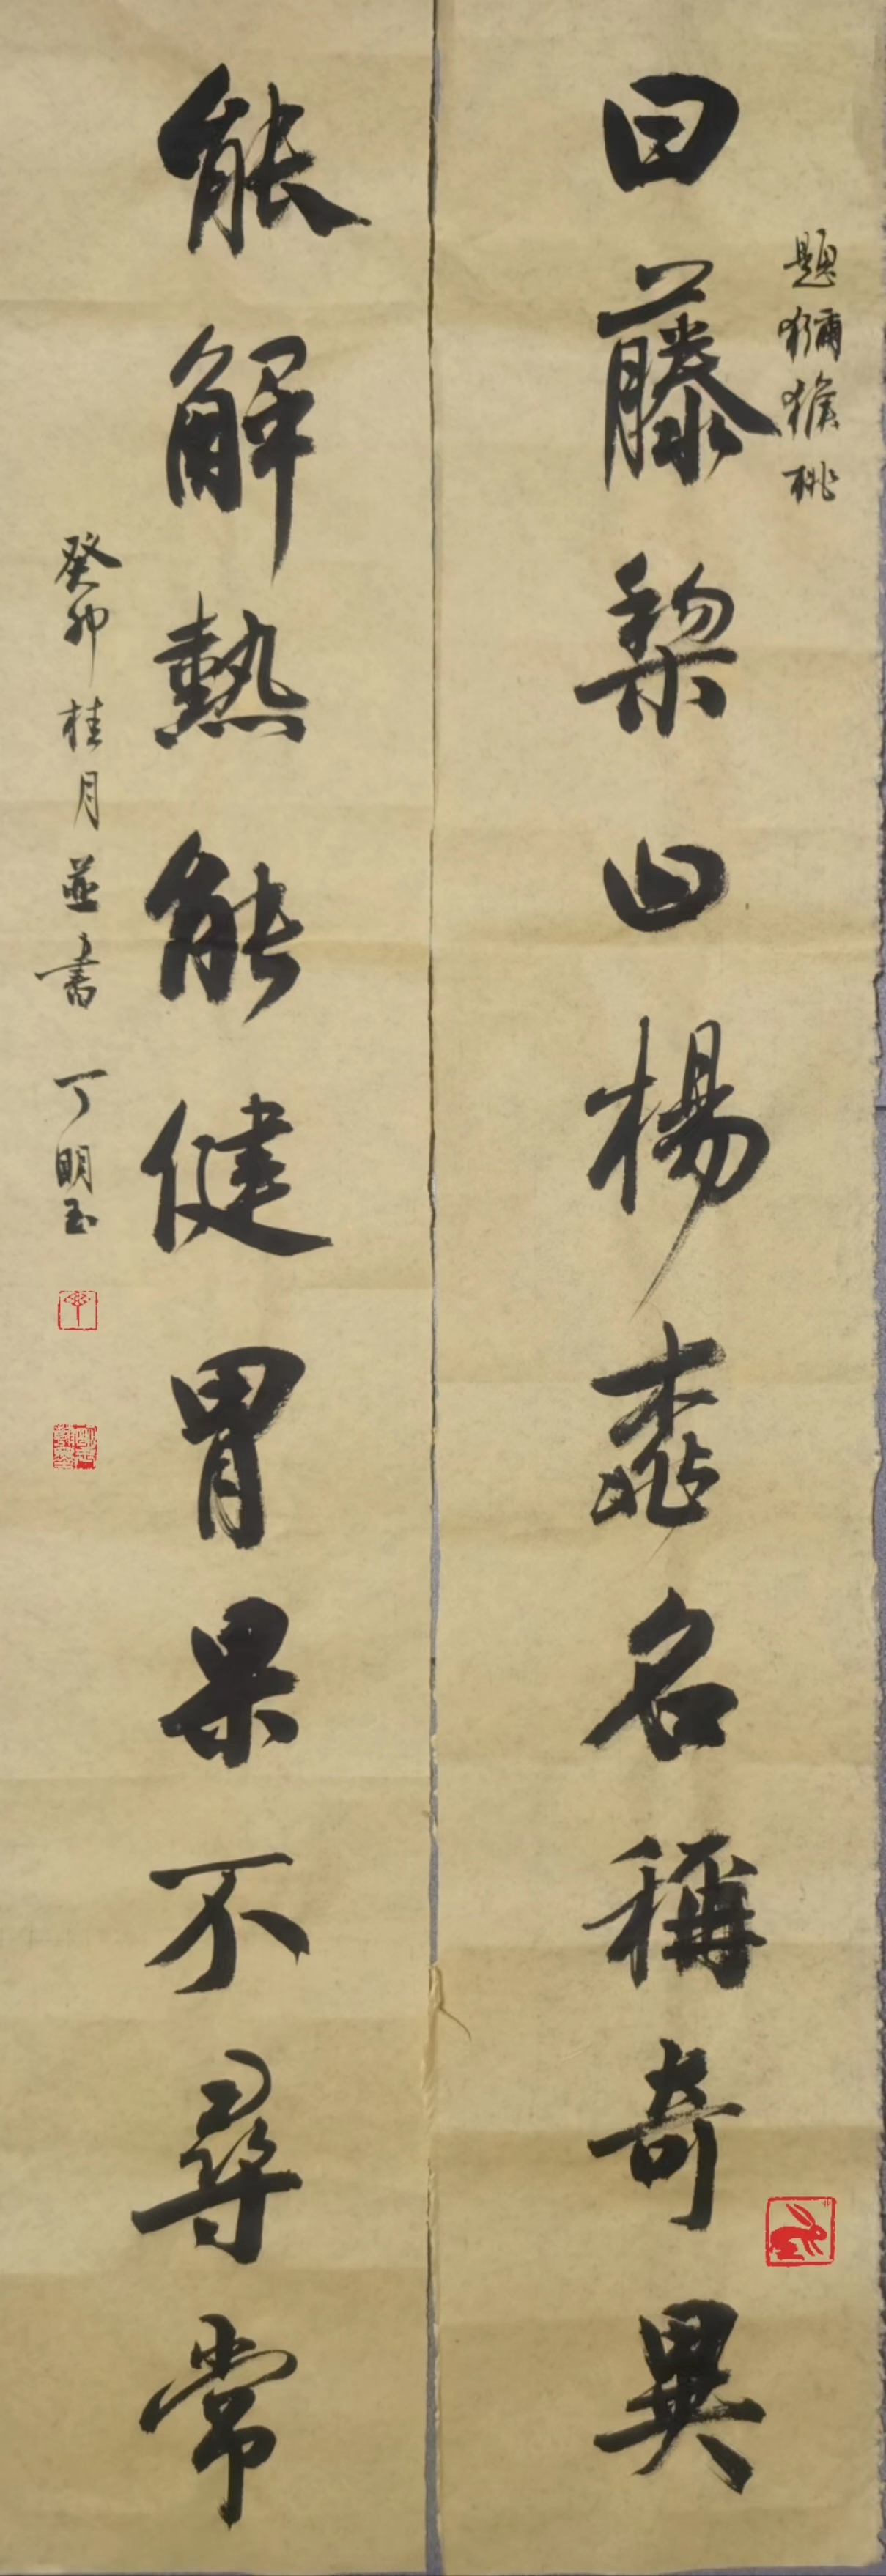 題獼猴桃
曰藤梨曰楊桃名稱奇異
能解熱能健胃果不尋常
癸卯桂月並書丁明玉